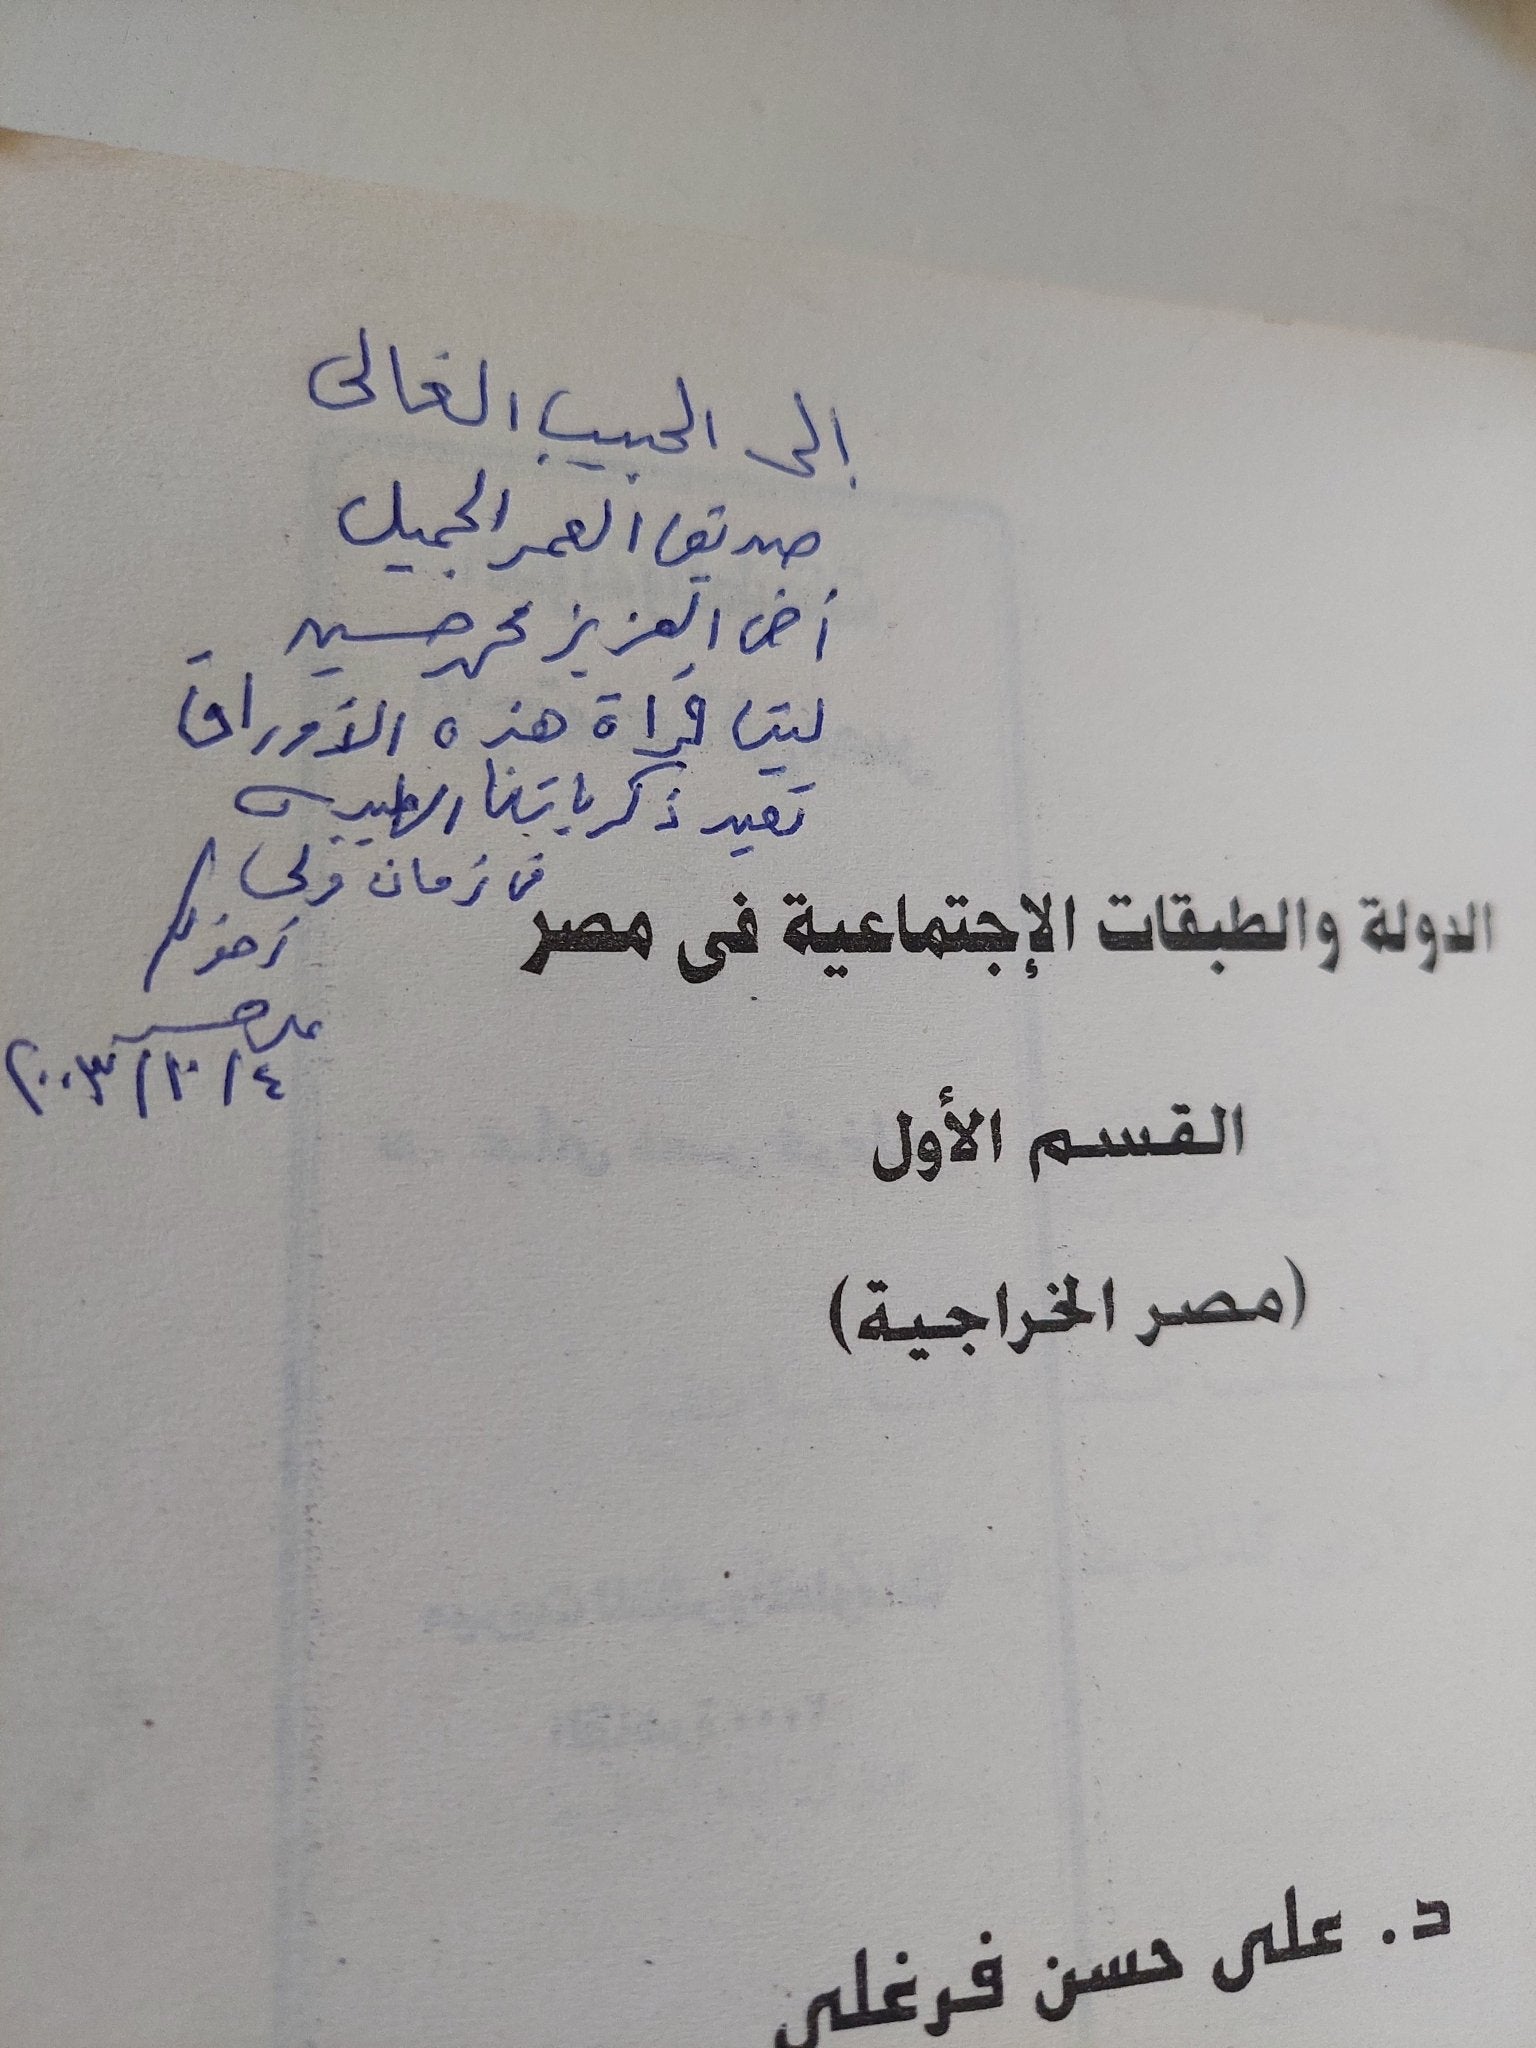 إلى الحبيب الغالى
صديق العمر الجميل
أخى العزيز محمد حسين
ليت قراءة هذه الأوراق
تعيد ذكرياتنا الطيبة
فى زمان ولى
أخوكم
على حسن
٤/١٠/٢٠٠٣
الدولة والطبقات الإجتماعية فى مصر
القسم الأول
(مصر الخراجية)
د. على حسن فرغلى